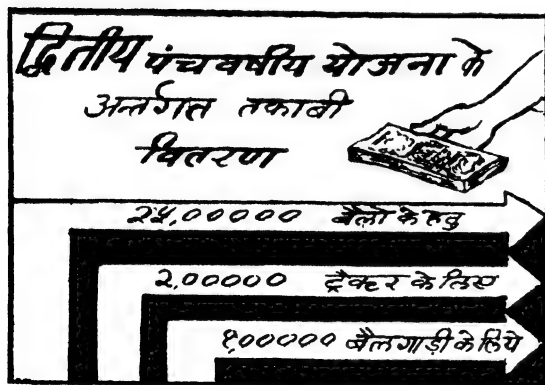 द्वितीय पंचवर्षीय योजना के
अर्न्तगत तकाबी
वितरण
२५,००००० बैलो के हेतु
२,००००० ट्रैक्टर के लिए
१,००००० बैलगाड़ी के लिये